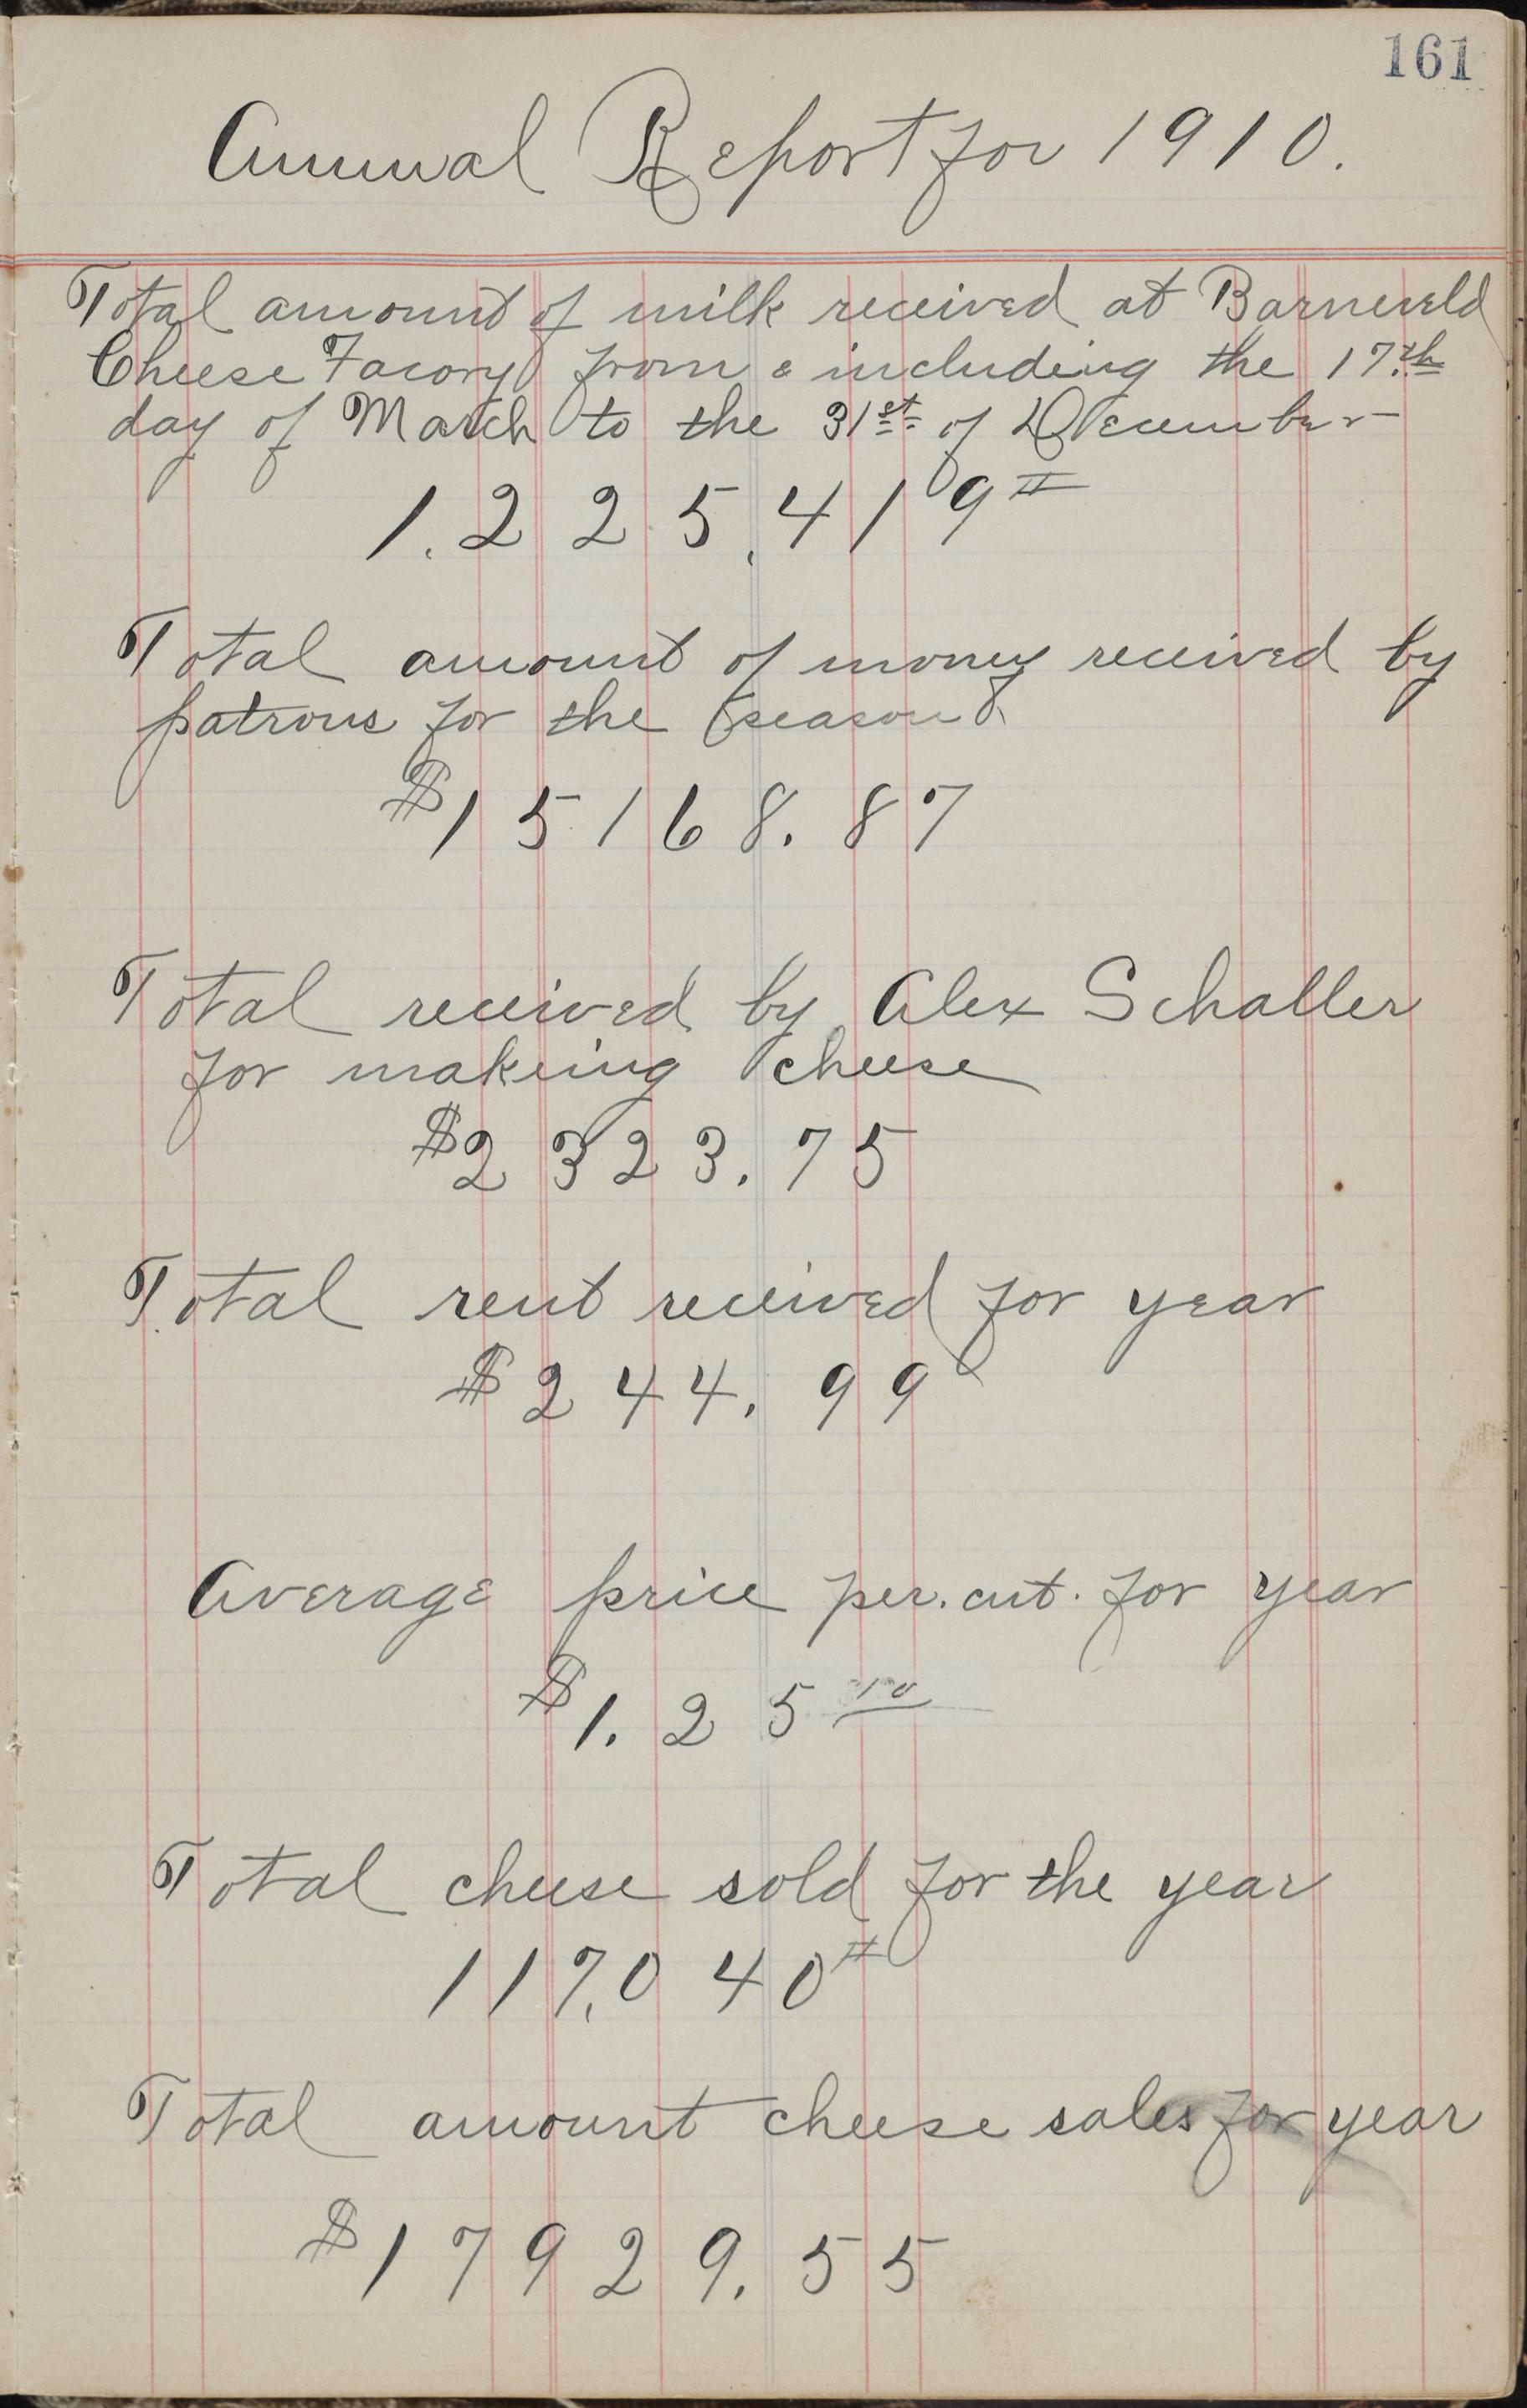 161
Annual Report for 1910.
Total amount of milk received at Barneveld
Cheese Facory from & including the 17th
day of March to the 31st of December
1.225,419#
Total amount of money received by
patrons for the season
$15168.87
Total received by Alex Schaller
for makeing cheese
$2323.75
Total rent received for year
$244.99
Average price per. cwt. for year
$1.25 10
Total cheese sold for the year
117,040#
Total amount cheese sales for year
$17929.55